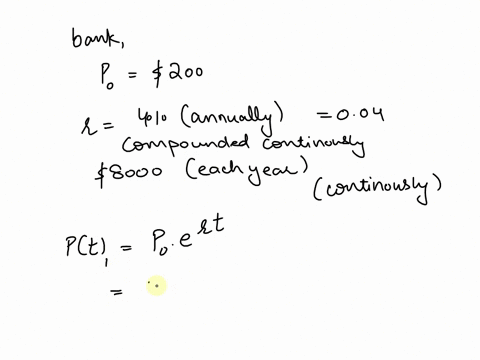 bank,
P₀ = $200
r = 4% (annually) = 0.04
compounded continously
$8000 (each year)
(continously)
P(t), = P₀·e^rt
=